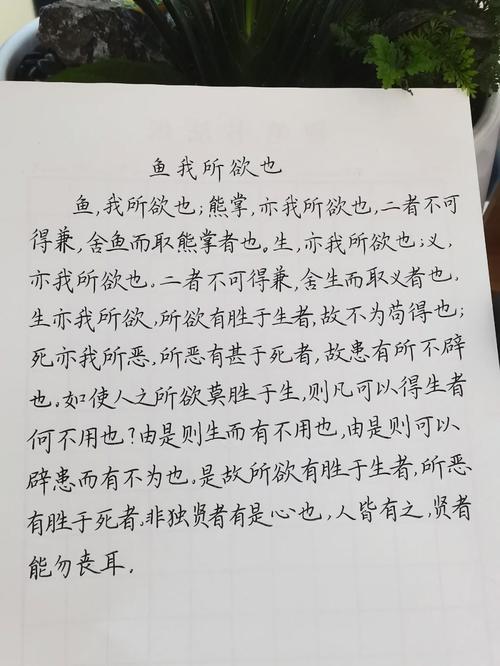 鱼我所欲也
鱼,我所欲也;熊掌,亦我所欲也,二者不可
得兼,舍鱼而取熊掌者也。生,亦我所欲也;义,
亦我所欲也。二者不可得兼,舍生而取义者也。
生亦我所欲,所欲有胜于生者,故不为苟得也;
死亦我所恶,所恶有甚于死者,故患有所不辟
也。如使人之所欲莫胜于生,则凡可以得生者
何不用也?由是则生而有不用也,由是则可以
辟患而有不为也。是故所欲有胜于生者,所恶
有胜于死者。非独贤者有是心也,人皆有之,贤者
能勿丧耳。